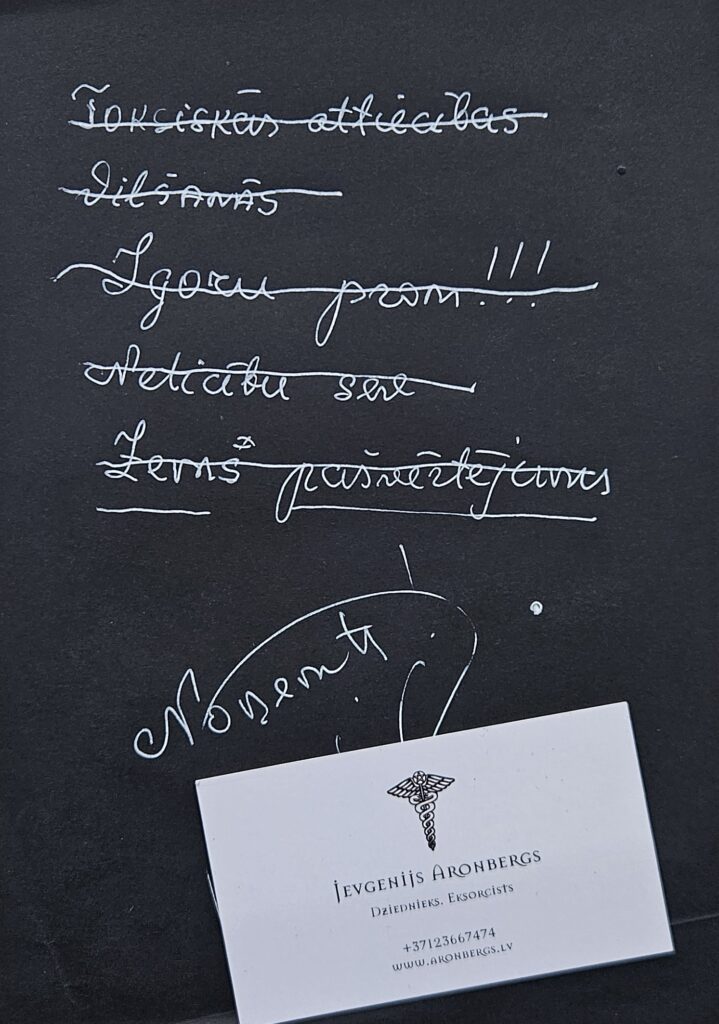 Toksiskās attiecības
Vilšanās
Igoru prom!!!
Neticību sev
Zemš pašvērtējums
Noņemti
JEVGENIJS ARONBERGS
DZIEDNIEKS. EKSORCISTS
+37123667474
WWW.ARONBERGS.LV